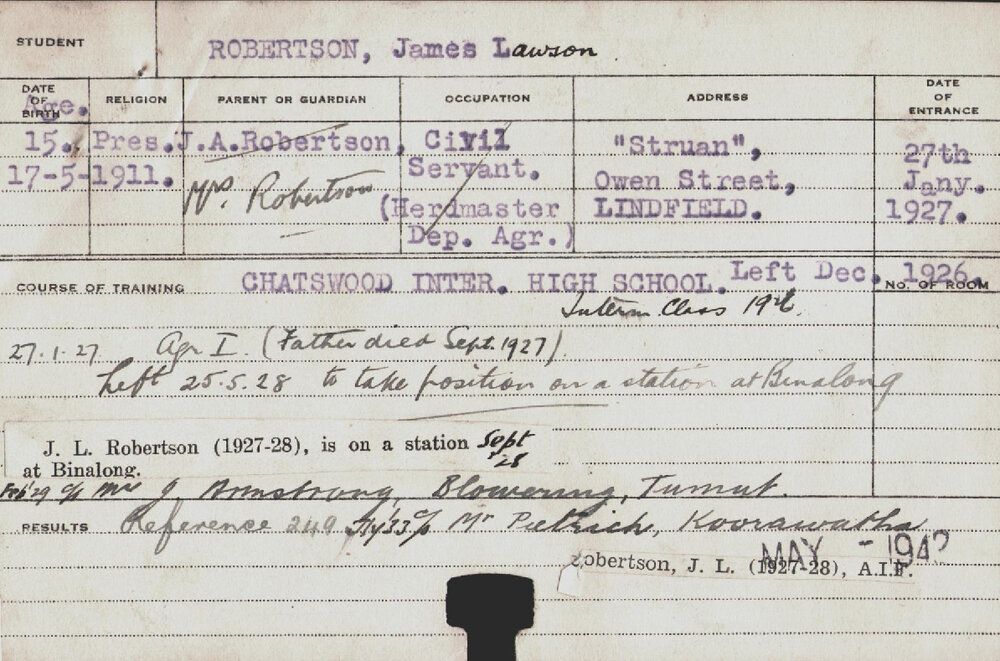 STUDENT ROBERTSON, James Lawson
DATE OF BIRTH Age. RELIGION PARENT OR GUARDIAN OCCUPATION ADDRESS DATE OF ENTRANCE
15. Pres. J.A.Robertson, Civil "Struan", 27th
17-5-1911. Mrs. Robertson Servant. Owen Street, Jany.
(Herdmaster LINDFIELD. 1927.
Dep. Agr.)
COURSE OF TRAINING CHATSWOOD INTER. HIGH SCHOOL. Left Dec. 1926. NO. OF ROOM
Interm. Class 1926.
27.1.27 Agr I. (Father died Sept. 1927).
Left 25.5.28 to take position on a station at Binalong
J. L. Robertson (1927-28), is on a station Sept '28
at Binalong.
Feb '29 c/o Mr J. Armstrong, Blowering, Tumut.
RESULTS Reference 249 '33 c/o Mr Pietrich, Koorawatha
MAY - 194
Robertson, J. L. (1927-28), A.I.F.